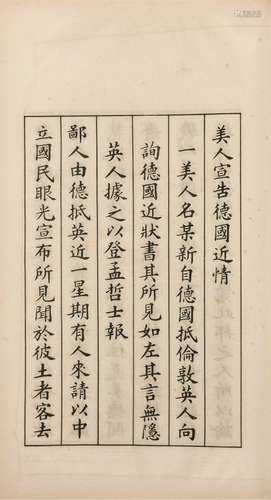 美人宣告德國近情
一美人名某新自德國抵倫敦英人向
詢德國近狀書其所見如左其言無隱
英人據之以登孟哲士報
鄙人由德抵英近一星期有人來請以中
立國民眼光宣布所見聞於彼土者客去